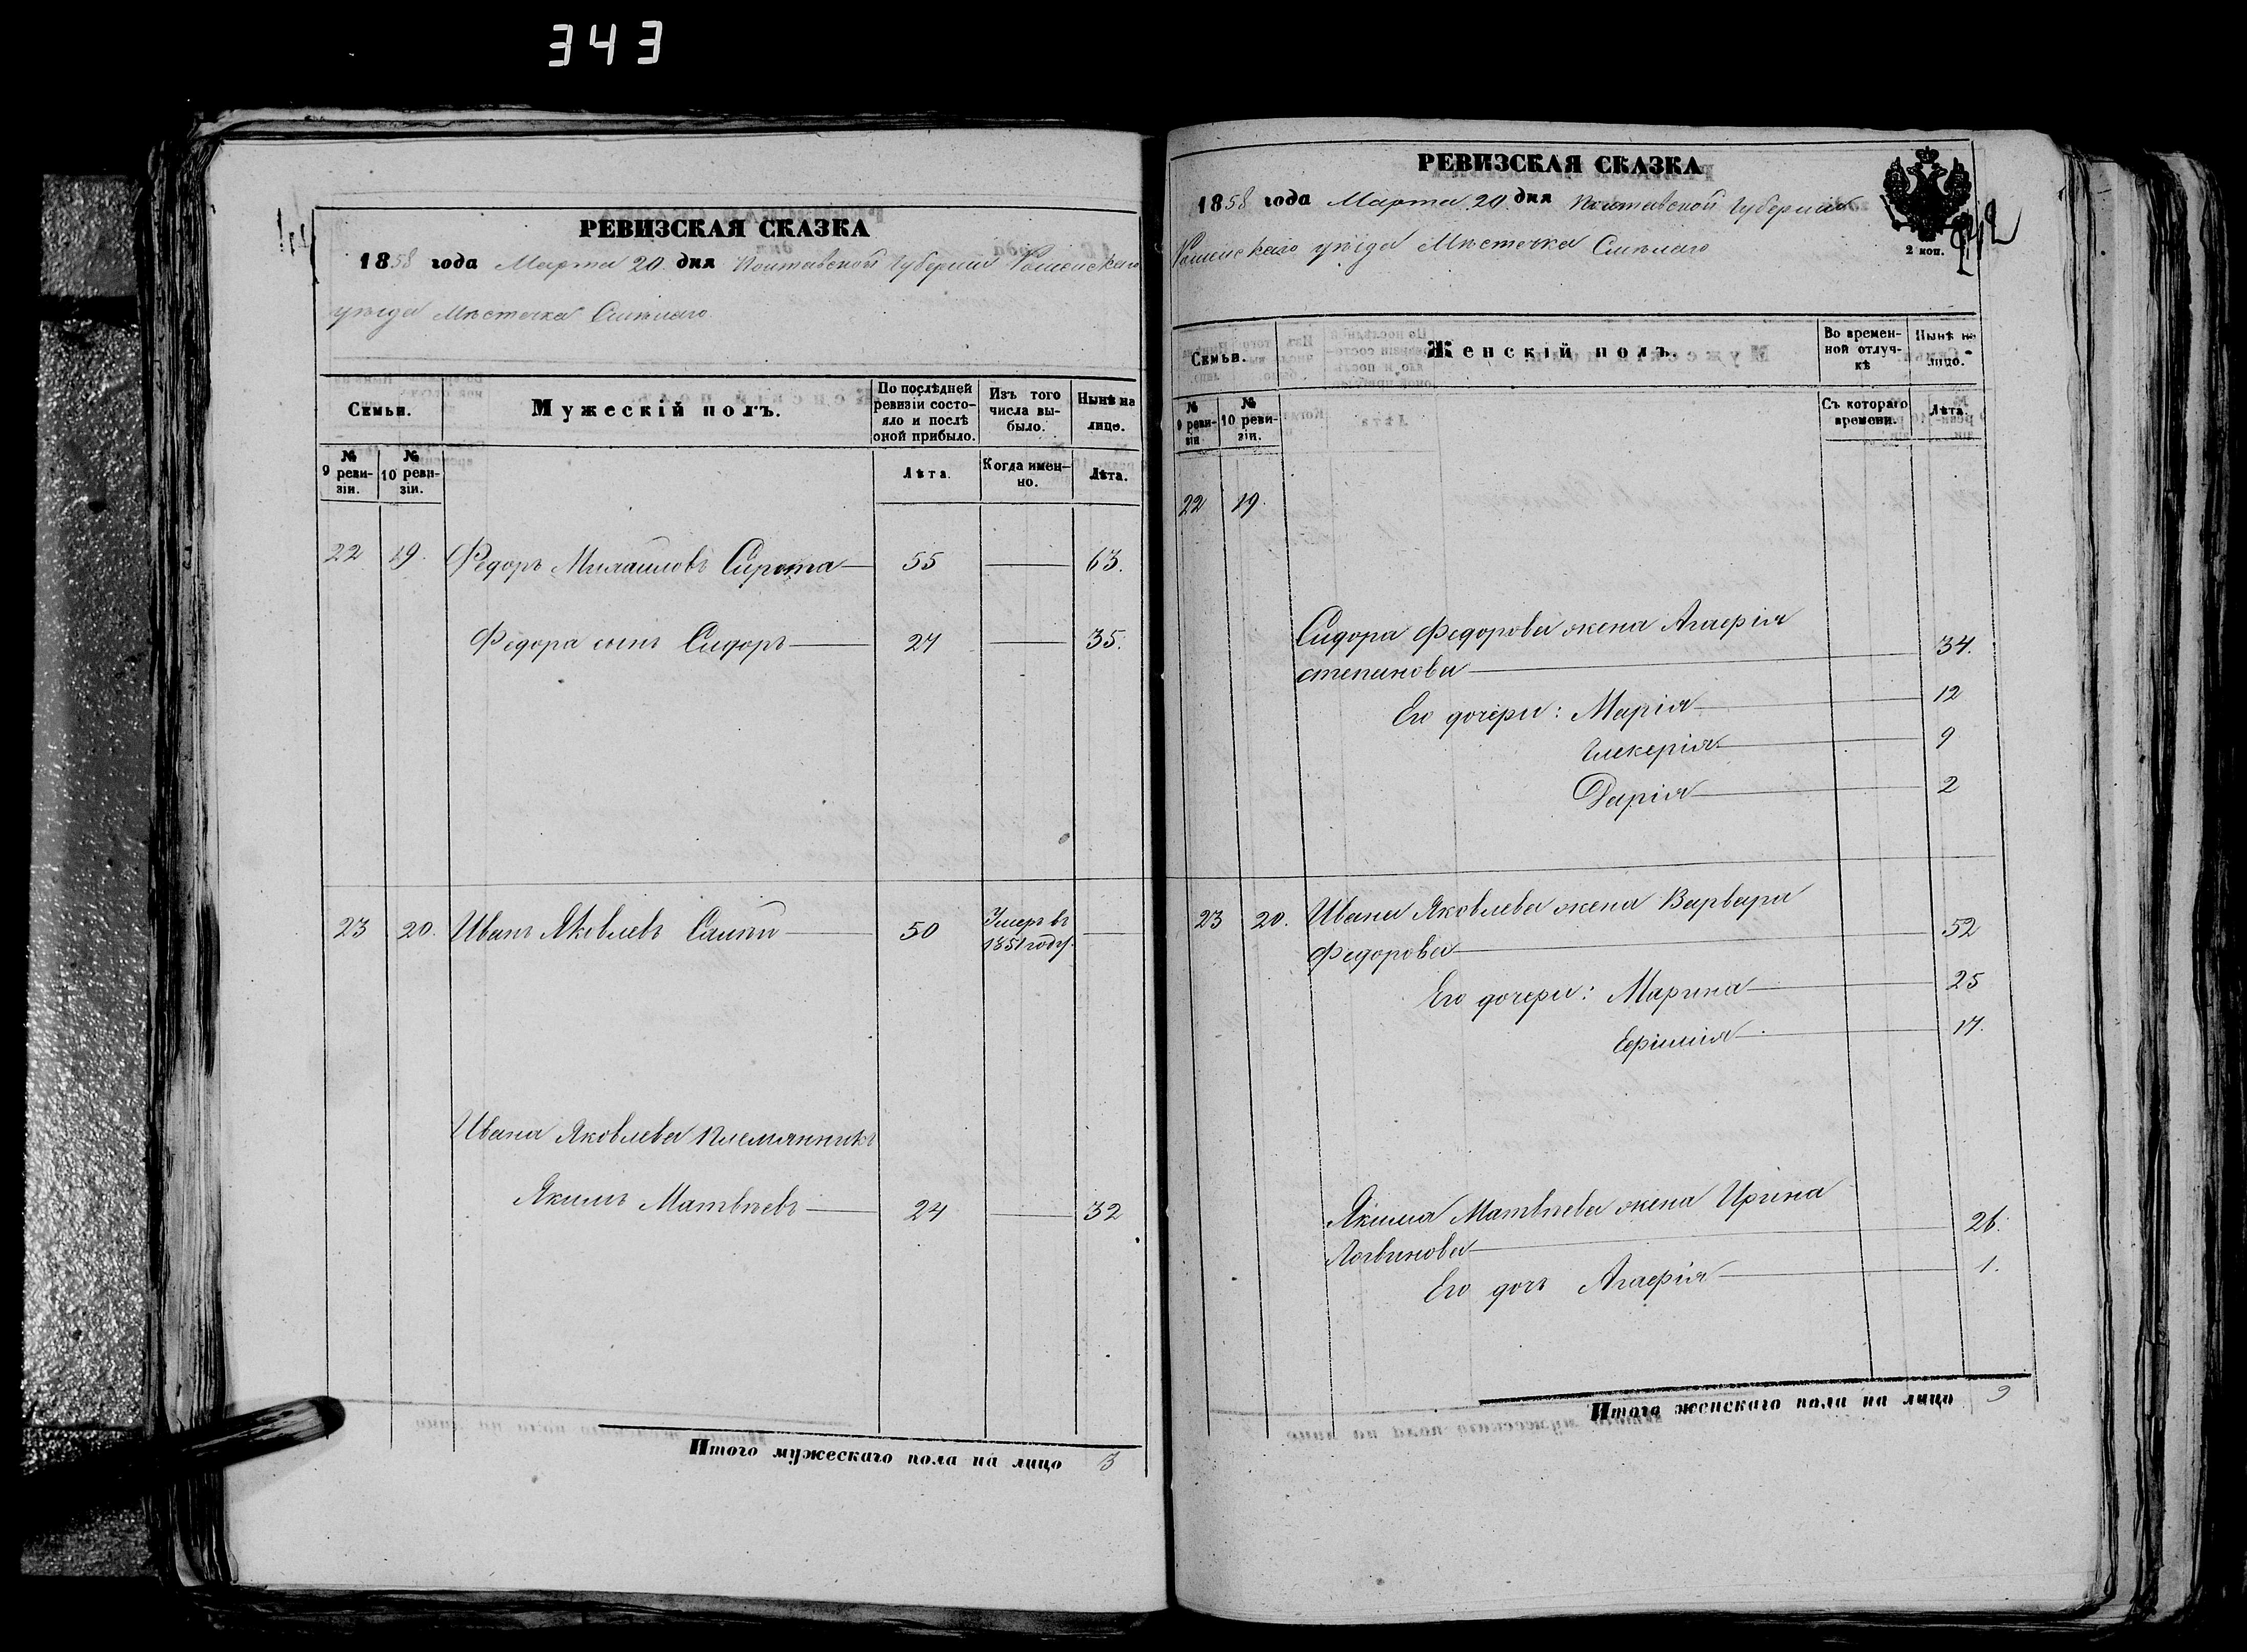 343
РЕВИЗСКАЯ СКАЗКА
1858 года Марта 20 дня Полтавской Губернии Роменскаго
уѣзда Мѣстечка Смѣлаго
Семьи.
Мужескій полъ.
По послѣдней ревизіи состояло и послѣ оной прибыло.
Изъ того числа выбыло.
Нынѣ на лицо.
№ 9 ревизіи.
№ 10 ревизіи.
Лѣта.
Когда именно.
Лѣта.
22 19. Федоръ Михаиловъ Сирота 55 — 63.
Федора сынъ Сидоръ 27 — 35.
23 20. Иванъ Яковлевъ 50 Умеръ въ 1851 году. —
Ивана Яковлева племянникъ
Якимъ Матвѣевъ 24 — 32
Итого мужескаго пола на лицо 3
РЕВИЗСКАЯ СКАЗКА
1858 года Марта 20 дня Полтавской Губернии
Роменскаго уѣзда Мѣстечка Смѣлаго
2 коп.
Семьи.
Женскій полъ.
Во временной отлучкѣ
Нынѣ на лицо.
№ 9 ревизіи
№ 10 ревизіи.
Съ котораго времени.
Лѣта.
22 19.
Сидора Федорова жена Агафія
степанова 34.
Его дочери: Марія 12
Гликерія 9
Дарія 2
23 20. Ивана Яковлева жена Варвара
Федорова 52
Его дочери: Марина 25
Ефимия 17.
Якима Матвѣева жена Ирина
Логвинова 26.
Его дочь Агафія 1.
Итого женскаго пола на лицо 9